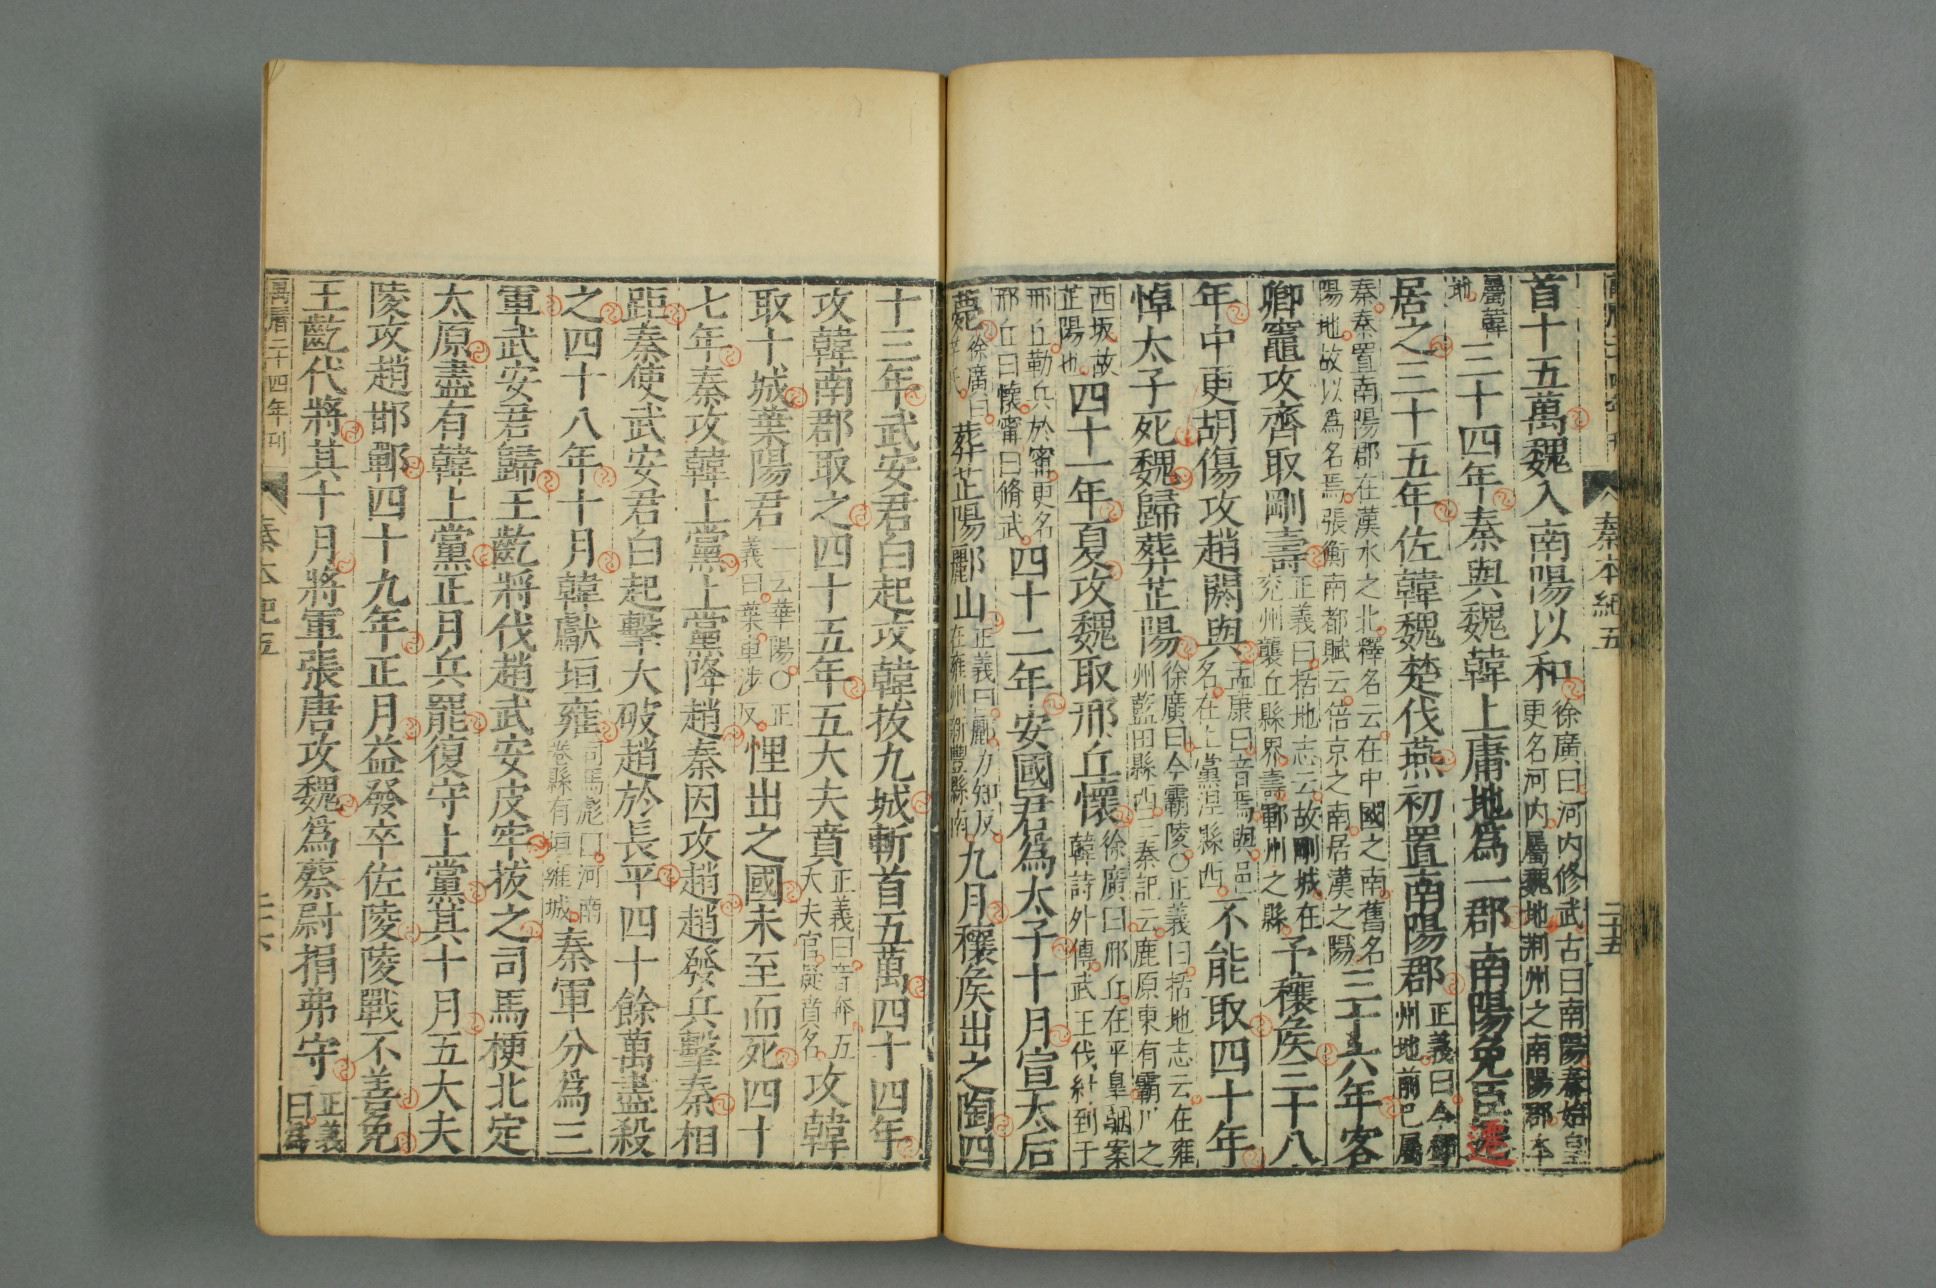 秦本紀五
二十五
首十五萬魏入南陽以和徐廣曰河内修武古曰南陽秦始皇更名河内屬魏地荆州之南陽郡本
屬韓地三十四年秦與魏韓上庸地為一郡南陽免臣遷
居之三十五年佐韓魏楚伐燕初置南陽郡正義曰今鄧州地前已屬
秦秦置南陽郡在漢水之北釋名云在中國之南舊名陽地故以為名焉張衡南都賦云倍京之南居漢之陽三十六年客
卿竈攻齊取剛壽正義曰括地志云故剛城在兖州襲丘縣界壽鄆州之縣予穰侯三十八
年中更胡傷攻趙閼與孟康曰音焉與邑名在上黨涅縣西不能取四十年
悼太子死魏歸葬芷陽徐廣曰今霸陵○正義曰括地志云在雍州藍田縣西三秦記云鹿原東有霸川之
西坂故芷陽也四十一年夏攻魏取邢丘懷徐廣曰邢丘在平皐駰案韓詩外傳武王伐紂到于
邢丘勒兵於甯更名邢丘曰懷甯曰脩武四十二年安國君為太子十月宣太后
薨徐廣曰葬芷陽酈山正義曰酈力知反在雍州新豐縣南九月穰侯出之陶四
十三年武安君白起攻韓拔九城斬首五萬四十四年
攻韓南郡取之四十五年五大夫賁正義曰音奔五大夫官疑音名攻韓
取十城葉陽君一云華陽○正義曰葉車涉反悝出之國未至而死四十
七年秦攻韓上黨上黨降趙秦因攻趙趙發兵擊秦相
距秦使武安君白起擊大破趙於長平四十餘萬盡殺
之四十八年十月韓獻垣雍司馬彪曰河南卷縣有垣雍城秦軍分為三
軍武安君歸王齕將伐趙武安皮牢拔之司馬梗北定
太原盡有韓上黨正月兵罷復守上黨其十月五大夫
陵攻趙邯鄲四十九年正月益發卒佐陵陵戰不善免
王齕代將其十月將軍張唐攻魏為蔡尉捐弗守正義曰為
萬曆二十四年刊
秦本紀五
二十六